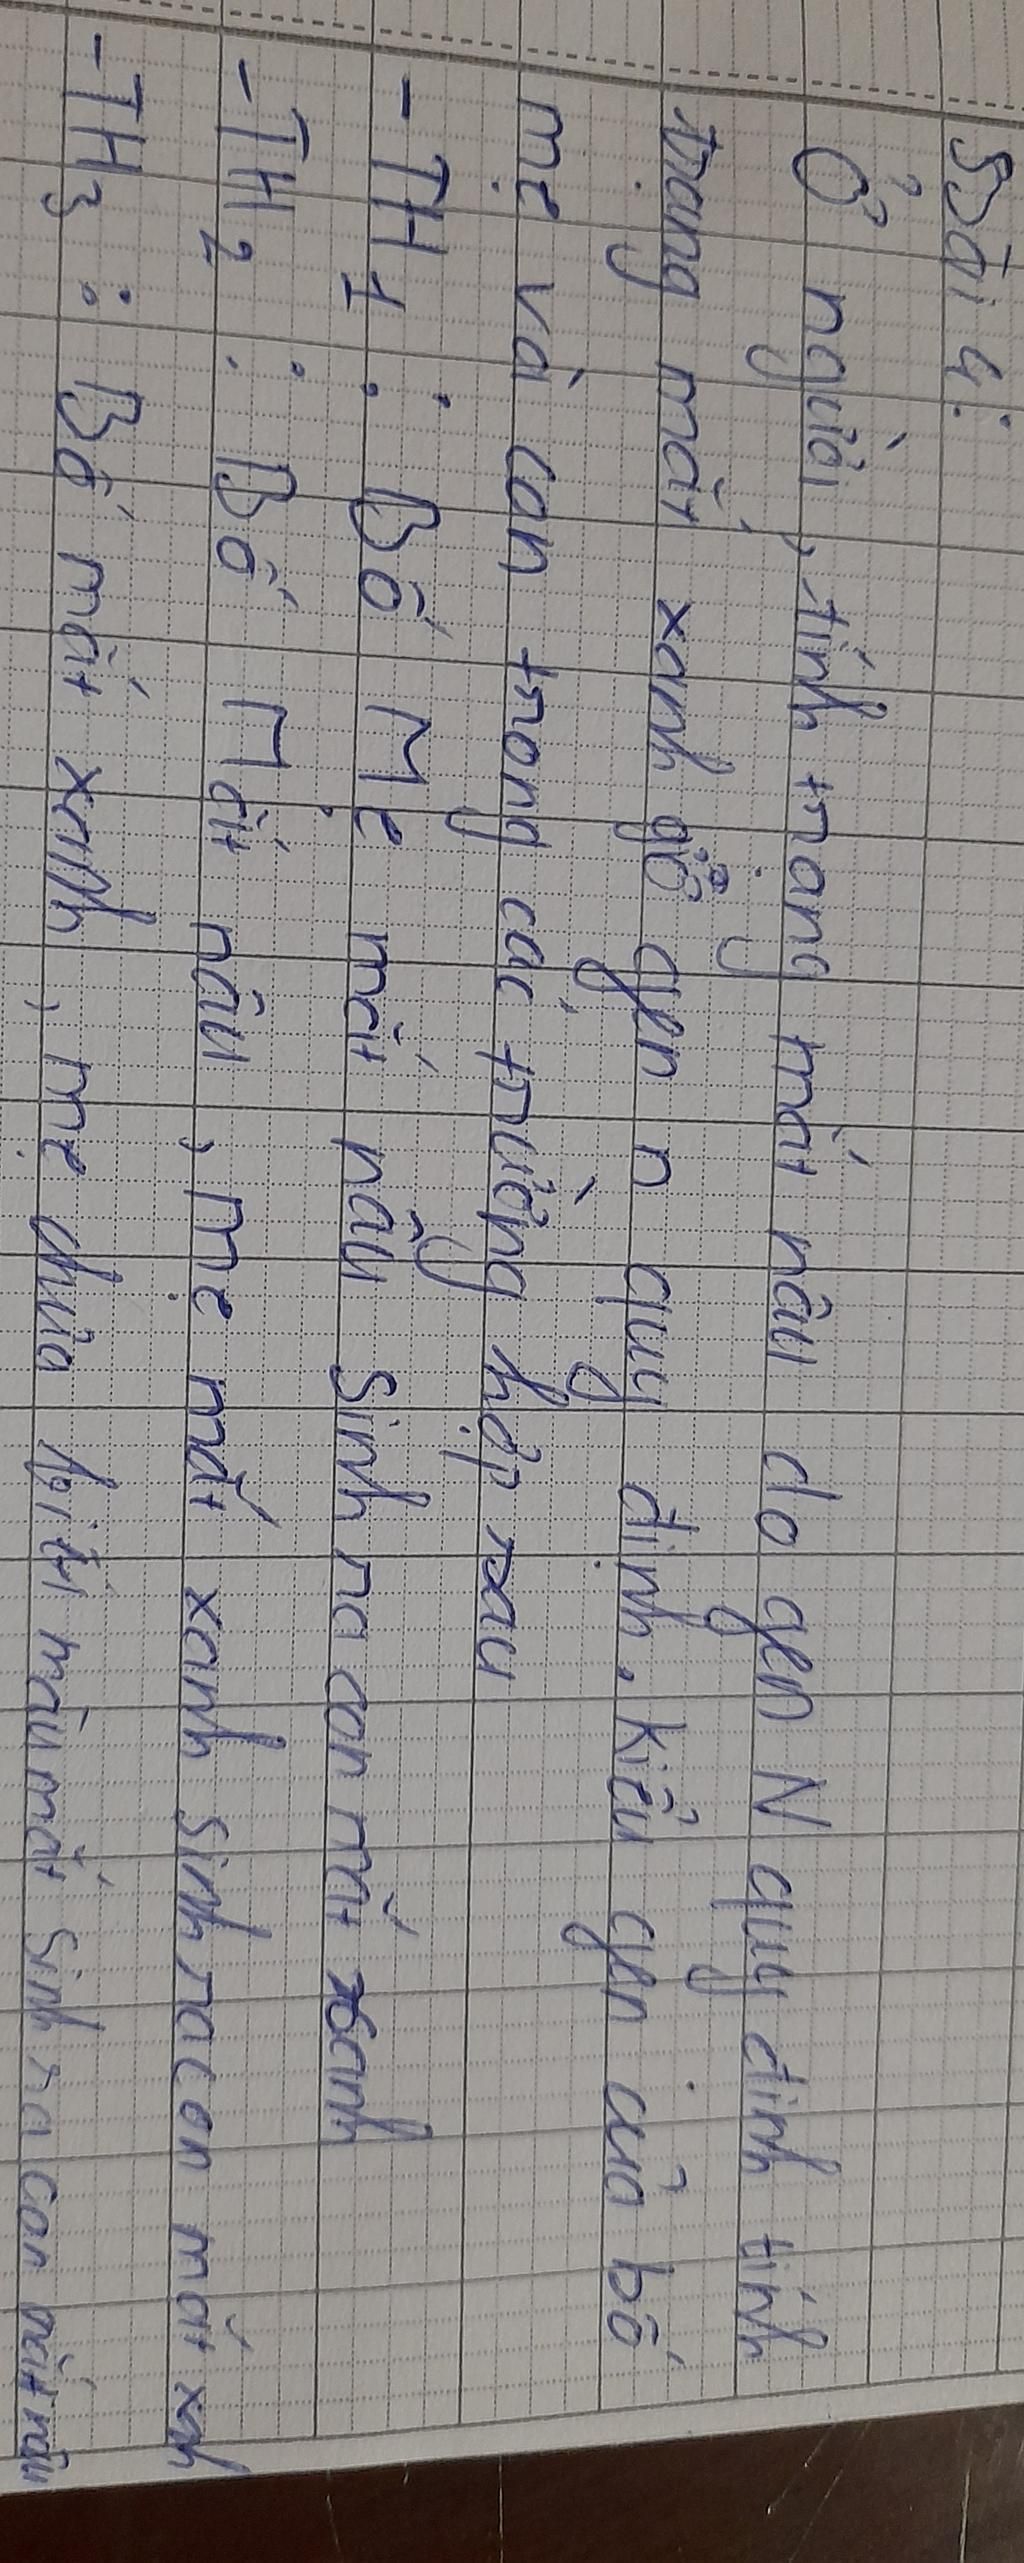 Bài 4:
Ở người, tính trạng mắt nâu do gen N quy định tính
trạng mắt xanh gen n quy định. Kiểu gen của bố
mẹ và con trong các trường hợp sau
- TH1: Bố Mẹ mắt nâu sinh ra con mắt xanh
- TH2: Bố Mắt nâu, mẹ mắt xanh sinh ra con mắt xnh
- TH3: Bố mắt xanh, mẹ chưa biết màu mắt sinh ra con mắt nâu